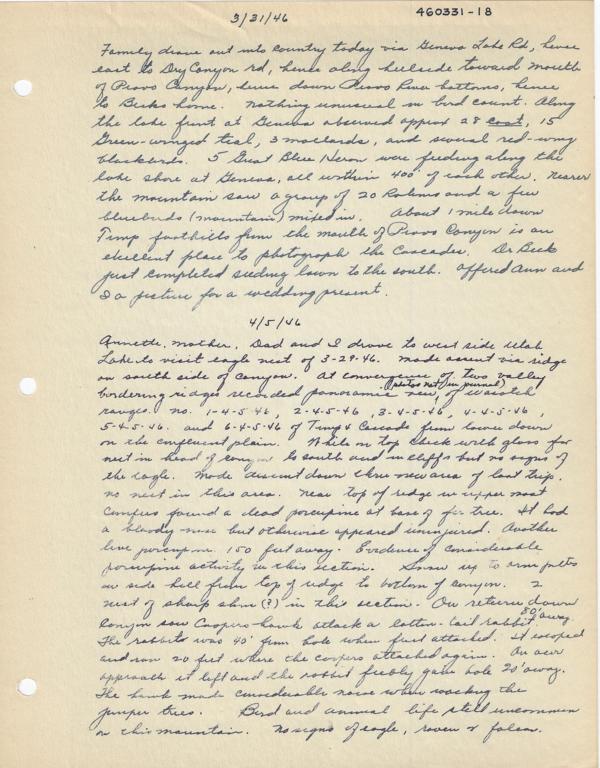 3/31/46
460331-18
Family drove out into country today via Geneva Lake Rd, hence
east to Dry Canyon rd, hence along hillside toward mouth
of Provo Canyon, hence down Provo River bottoms, hence
to Becks home. Nothing unusual in bird count. Along
the lake front at Geneva observed approx 28 coot, 15
Green-winged teal, 3 mallards, and several red-wing
blackbirds. 5 Great Blue Heron were feeding along the
lake shore at Geneva, all within 400' of each other. Nearer
the mountain saw a group of 20 Robins and a few
bluebirds (mountain) mixed in. About 1 mile down
Timp foothills from the mouth of Provo Canyon is an
excellent place to photograph the Cascades. Dr Beck
just completed seeding lawn to the south. Offered Ann and
I a picture for a wedding present.
4/5/46
Annette, Mother, Dad and I drove to west side Utah
Lake to visit eagle nest of 3-29-46. Made ascent via ridge
on south side of canyon. At convergence of two valley
(photos not in journal)
bordering ridges recorded panoramic view, of wasatch
ranges. no. 1-4-5-46, 2-4-5-46, 3-4-5-46, 4-4-5-46,
5-4-5-46. and 6-4-5-46 of Timp & Cascade from lower down
on the confluent plain. While on top check with glass for
nest in head of canyon to south and in cliffs but no signs of
the eagle. Made descent down thru new area of last trip.
no nest in this area. Near top of ridge in upper most
conifers found a dead porcupine at base of fir tree. It had
a bloody nose but otherwise appeared uninjured. Another
live porcupine 150 feet away. Evidence of considerable
porcupine activity in this section. Snow up to arm pits
on side hill from top of ridge to bottom of canyon. 2
nest of sharp shin (?) in this section. On return down
canyon saw Coopers hawk attack a cotton-tail rabbit 80' away.
The rabbits was 40' from hole when first attacked. It escaped
and ran 20 feet where the coopers attacked again. On our
approach it left and the rabbit feebly gain hole 20' away.
The hawk made considerable noise when working the
juniper trees. Bird and animal life still uncommon
on this mountain. No signs of eagle, raven & falcon.